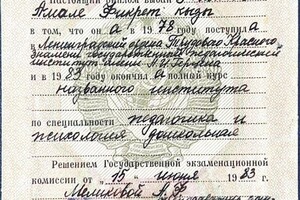 Настоящий диплом выдан
Амале Фикрет кызы
в том, что он а в 1978 году поступила
в Ленинградский ордена Трудового Красного
Знамени государственный педагогический
институт имени А.И. Герцена
и в 1983 году окончила полный курс
названного института
по специальности педагогика и
психология дошкольная
Решением Государственной экзаменационной
комиссии от "15" июня 1983 г.
Меликовой А. Ф.